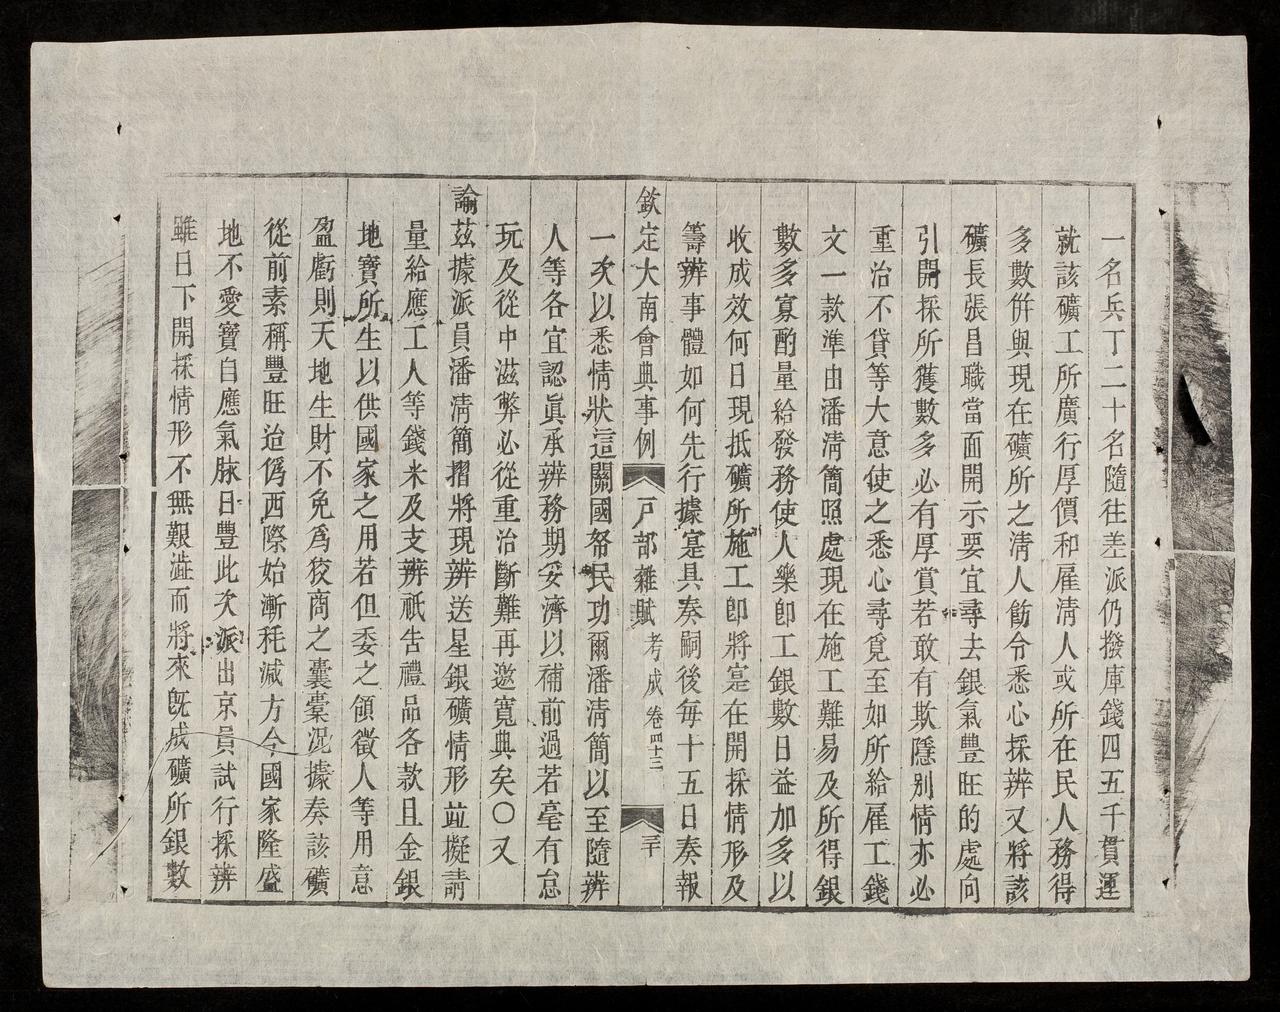 一名兵丁二十名隨往差派仍撥庫錢四五千貫運
就該礦工所廣行厚價和雇清人或所在民人務得
多數併與現在礦所之清人飭令悉心採辨又將該
礦長張昌職當面開示要宜尋去銀氣豐旺的處向
引開採所獲數多必有厚賞若敢有欺隱別情亦必
重治不貸等大意使之悉心尋覓至如所給雇工錢
文一款準由潘清簡照處現在施工難易及所得銀
數多寡酌量給發務使人樂即工銀數日益加多以
收成效何日現抵礦所施工即將寔在開採情形及
籌辨事體如何先行據寔具奏嗣後每十五日奏報
欽定大南會典事例 戸部雜賦 考成 卷四十三 三十
一次以悉情狀這關國帑民功爾潘清簡以至隨辨
人等各宜認眞承辨務期妥濟以補前過若毫有怠
玩及從中滋弊必從重治斷難再邀寬典矣○又
諭茲據派員潘清簡摺將現辨送星銀礦情形竝擬請
量給應工人等錢米及支辨祇告禮品各款且金銀
地寶所生以供國家之用若但委之領徵人等用意
盈虧則天地生財不免爲狡商之囊槖況據奏該礦
從前素稱豐旺迨僞西際始漸耗減方今國家隆盛
地不愛寶自應氣脉日豐此次派出京員試行採辨
雖日下開採情形不無艱澁而將來旣成礦所銀數